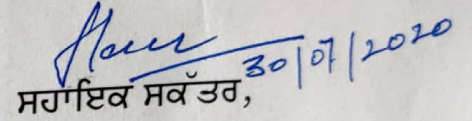 30/07/2020
ਸਹਾਇਕ ਸਕੱਤਰ,